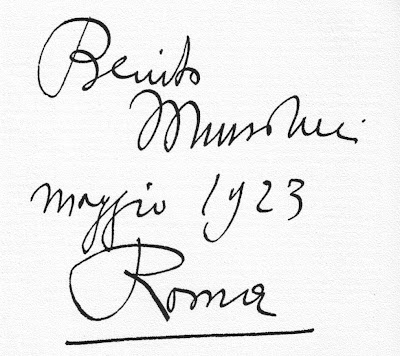 Benito
Mussolini
maggio 1923
Roma